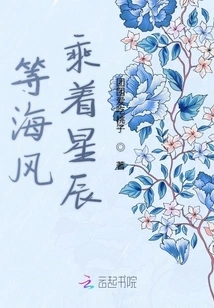 乘着星辰
等海风
著
云起书院